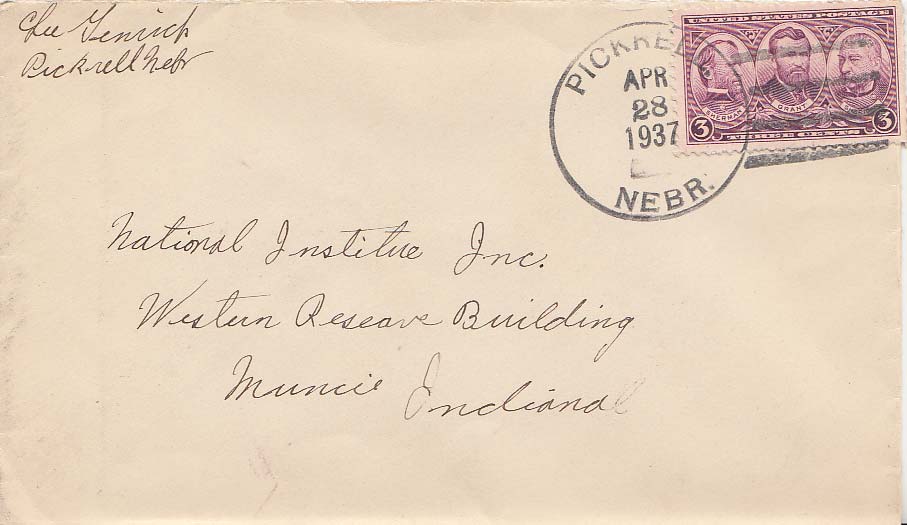 Lee
Pickrell Nebr
PICKRELL
APR
28
1937
NEBR.
UNITED STATES POSTAGE
SHERMAN GRANT
3 THREE CENTS 3
National Institue Inc.
Western Reseave Building
Muncie Indiana